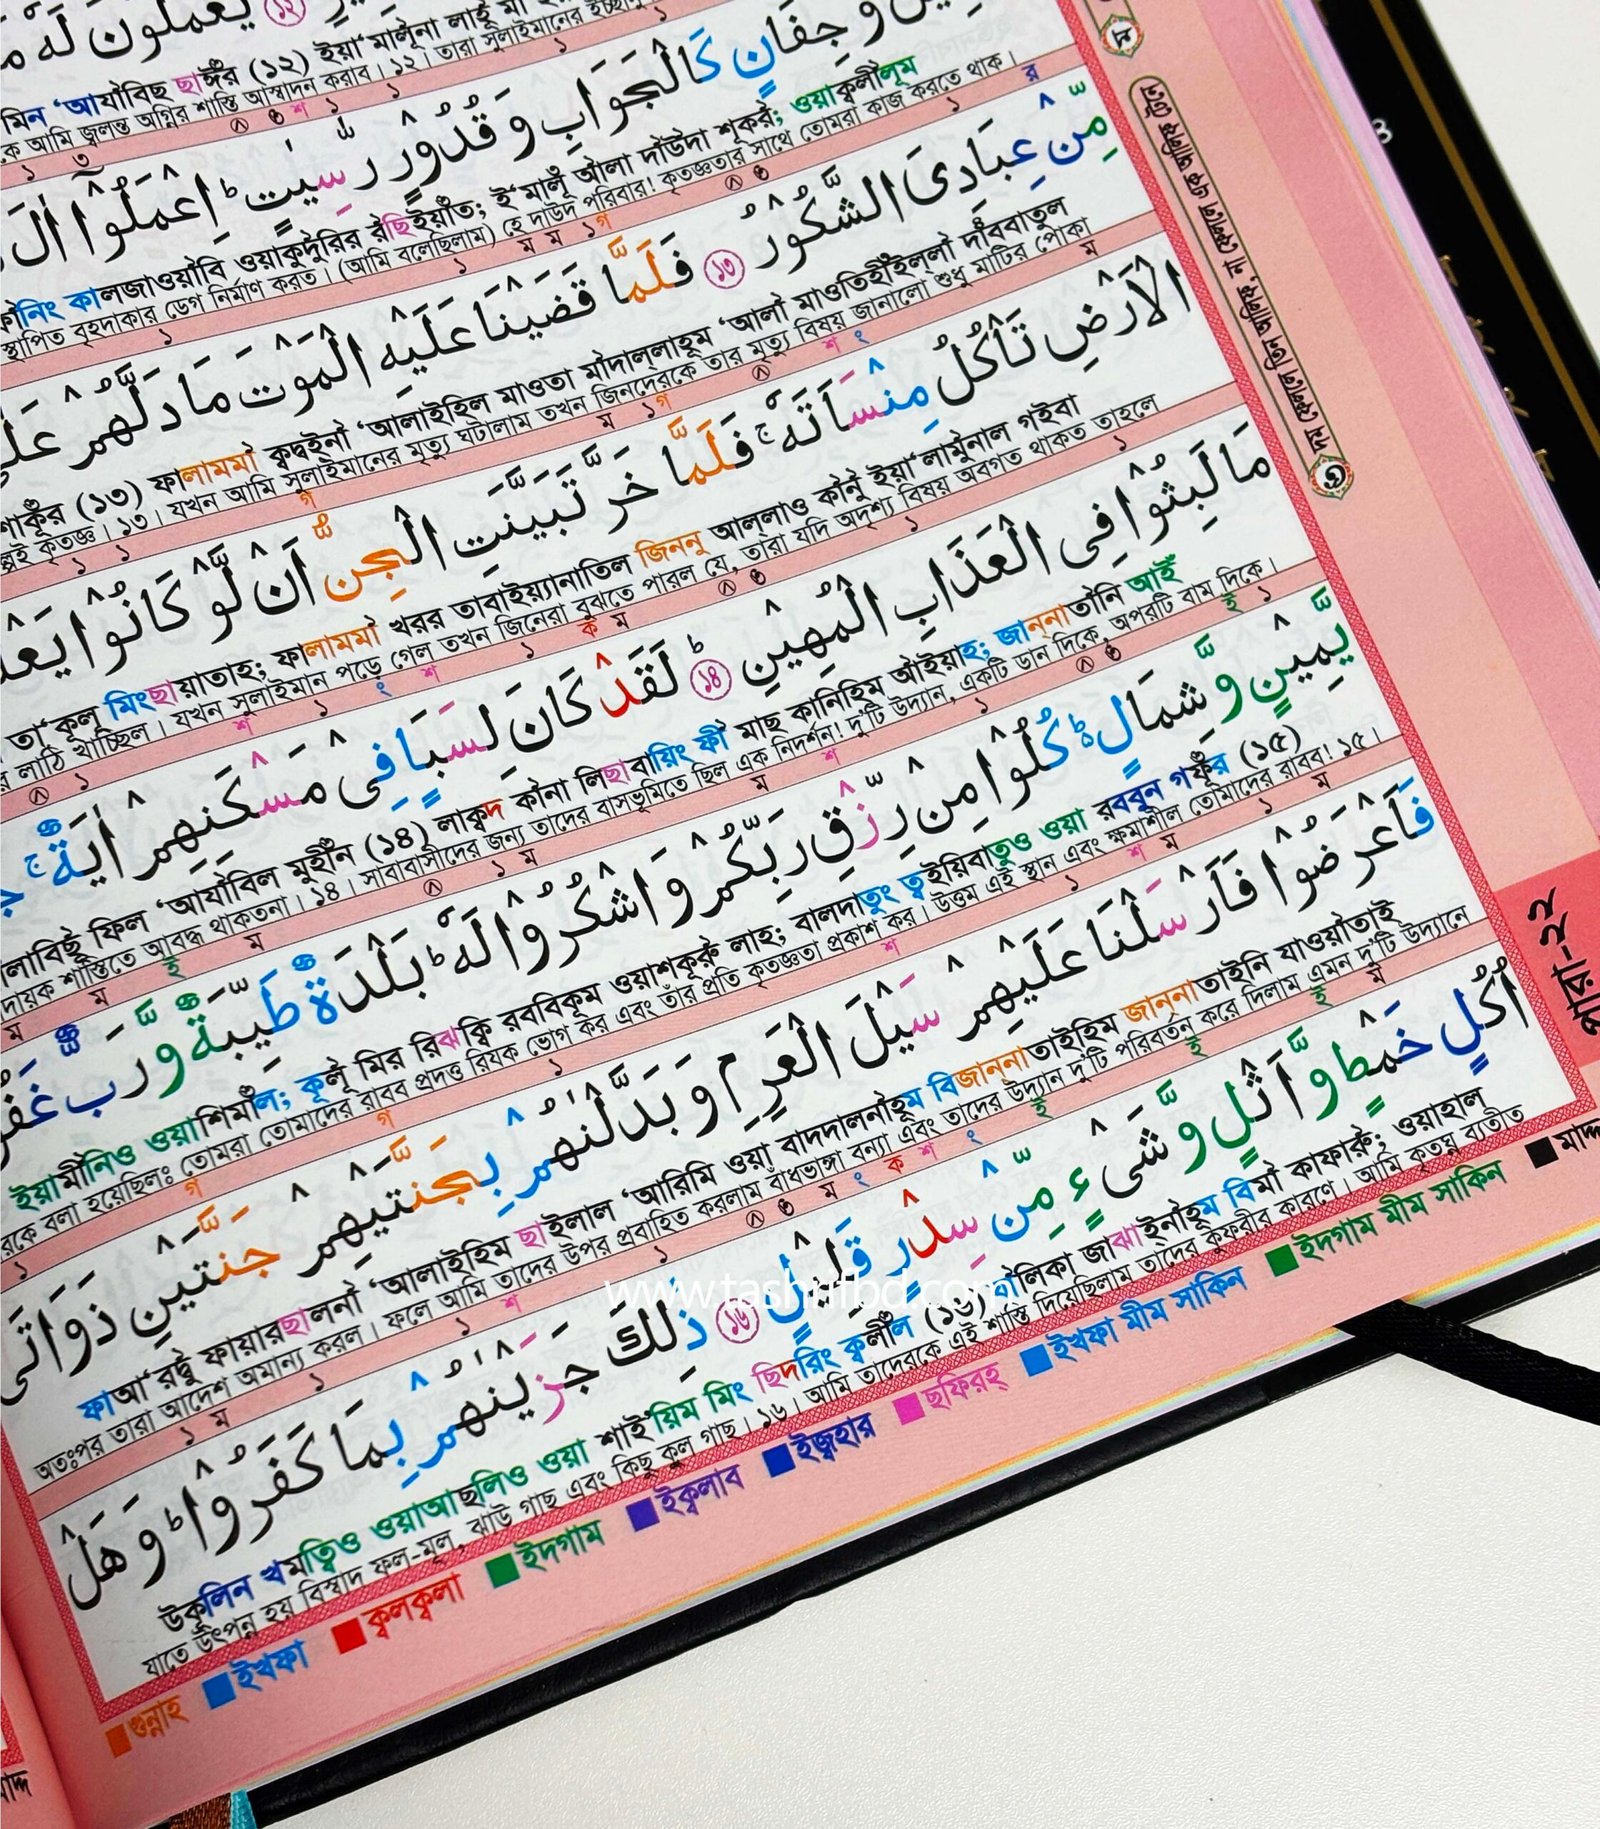 يعملون له
মিন ‘আযাবিছ ছাঈঁর (১২) ইয়া‘মালূনা লাহূ মা
কে আমি জ্বলন্ত অগ্নির শাস্তি আস্বাদন করাব। ১২। তারা সুলাইমানের ইচ্ছানু
وجفان كالجواب وقدور رسيت ط اعملوا ال
নিং কালজাওয়াবি ওয়াকুদূরির রছিইয়াত; ই‘মালূ আলা দাউদা শূকর; ওয়াক্বলীলূম
স্থাপিত বৃহদাকার ডেগ নির্মাণ করত। (আমি বলেছিলাম) হে দাউদ পরিবার! কৃতজ্ঞতার সাথে তোমরা কাজ করতে থাক।
من عبادي الشكور ১৩ فلما قضينا عليه الموت ما دلهم على
শাকূর (১৩) ফালামমা ক্বদ্বইনা ‘আলাইহিল মাওতা মাদাল্লাহূম ‘আলা মাওতিহীইল্লা দাববাতুল
ল্পই কৃতজ্ঞ। ১৩। যখন আমি সুলাইমানের মৃত্যু ঘটালাম তখন জিনদেরকে তার মৃত্যু বিষয় জানালো শুধু মাটির পোকা
الارض تاكل منساته ج فلما خر تبينت الجن ان لو كانوا
তা‘কূলু মিংছায়াতাহ; ফালামমা খরর তাবাইয়্যানাতিল জিননু আল্লাও কানু ইয়া‘লামূনাল গইবা
র লাঠি খাচ্ছিল। যখন সুলাইমান পড়ে গেল তখন জিনেরা বুঝতে পারল যে, তারা যদি অদৃশ্য বিষয় অবগত থাকত তাহলে
ما لبثوا في العذاب المهين ط ১৪ لقد كان لسبا في مسكنهم اية ج
লাবিছূ ফিল ‘আযাবিল মুহীন (১৪) লাক্বদ কানা লিছাবায়িং ফী মাছ কানিহিম আইয়াহ; জান্নাতানি আই
দায়ক শাস্তিতে আবদ্ধ থাকতনা। ১৪। সাবাবাসীদের জন্য তাদের বাসভূমিতে ছিল এক নিদর্শন! দু’টি উদ্যান, একটি ডান দিকে, অপরটি বাম দিকে।
يمين وشمال ط كلوا من رزق ربكم واشكروا له ط بلدة طيبة ورب
ইয়ামীনিও ওয়াশিমাল; কূলূ মির রিঝক্বি রববিকূম ওয়াশকূরূ লাহ; বালদাতুং ত্বইয়িবাতুও ওয়া রববুন গফূর (১৫)
রকে বলা হয়েছিলঃ তোমরা তোমাদের রাবব প্রদত্ত রিযক ভোগ কর এবং তাঁর প্রতি কৃতজ্ঞতা প্রকাশ কর। উত্তম এই স্থান এবং ক্ষমাশীল তোমাদের রাবব! ১৫।
فاعرضوا فارسلنا عليهم سيل العرم وبدلنهم بجنتيهم جنتين ذواتي
ফাআ‘রদ্বূ ফায়ারছালনা ‘আলাইহিম ছাইলাল ‘আরিমি ওয়া বাদদালনাহূম বিজান্নাতাইহিম জান্নাতাইনি যাওয়াতাই
অতঃপর তারা আদেশ অমান্য করল। ফলে আমি তাদের উপর প্রবাহিত করলাম বাঁধভাঙ্গা বন্যা এবং তাদের উদ্যান দু’টি পরিবর্তন করে দিলাম এমন দু’টি উদ্যানে
اكل خمط واثل وشيء من سدر قليل ১৬ ذلك جزينهم بما كفروا ط وهل
উকূলিন খমত্বিও ওয়াআছলিও ওয়া শাই‘য়িম মিং ছিদরিং ক্বলীল (১৬) যালিকা জাঝাইনাহূম বিমা কাফারূ; ওয়াহাল
যাতে উৎপন্ন হয় বিস্বাদ ফল-মূল, ঝাউ গাছ এবং কিছু কুল গাছ। ১৬। আমি তাদেরকে এই শাস্তি দিয়েছিলাম তাদের কুফরীর কারণে। আমি কৃতঘ্ন ব্যতীত
গুন্নাহ ইখফা ক্বলক্বলা ইদগাম ইক্বলাব ইজ্বহার ছফিরহ্ ইখফা মীম সাকিন ইদগাম মীম সাকিন মাদ্দ
পারা-২২
www.tashrifbd.com